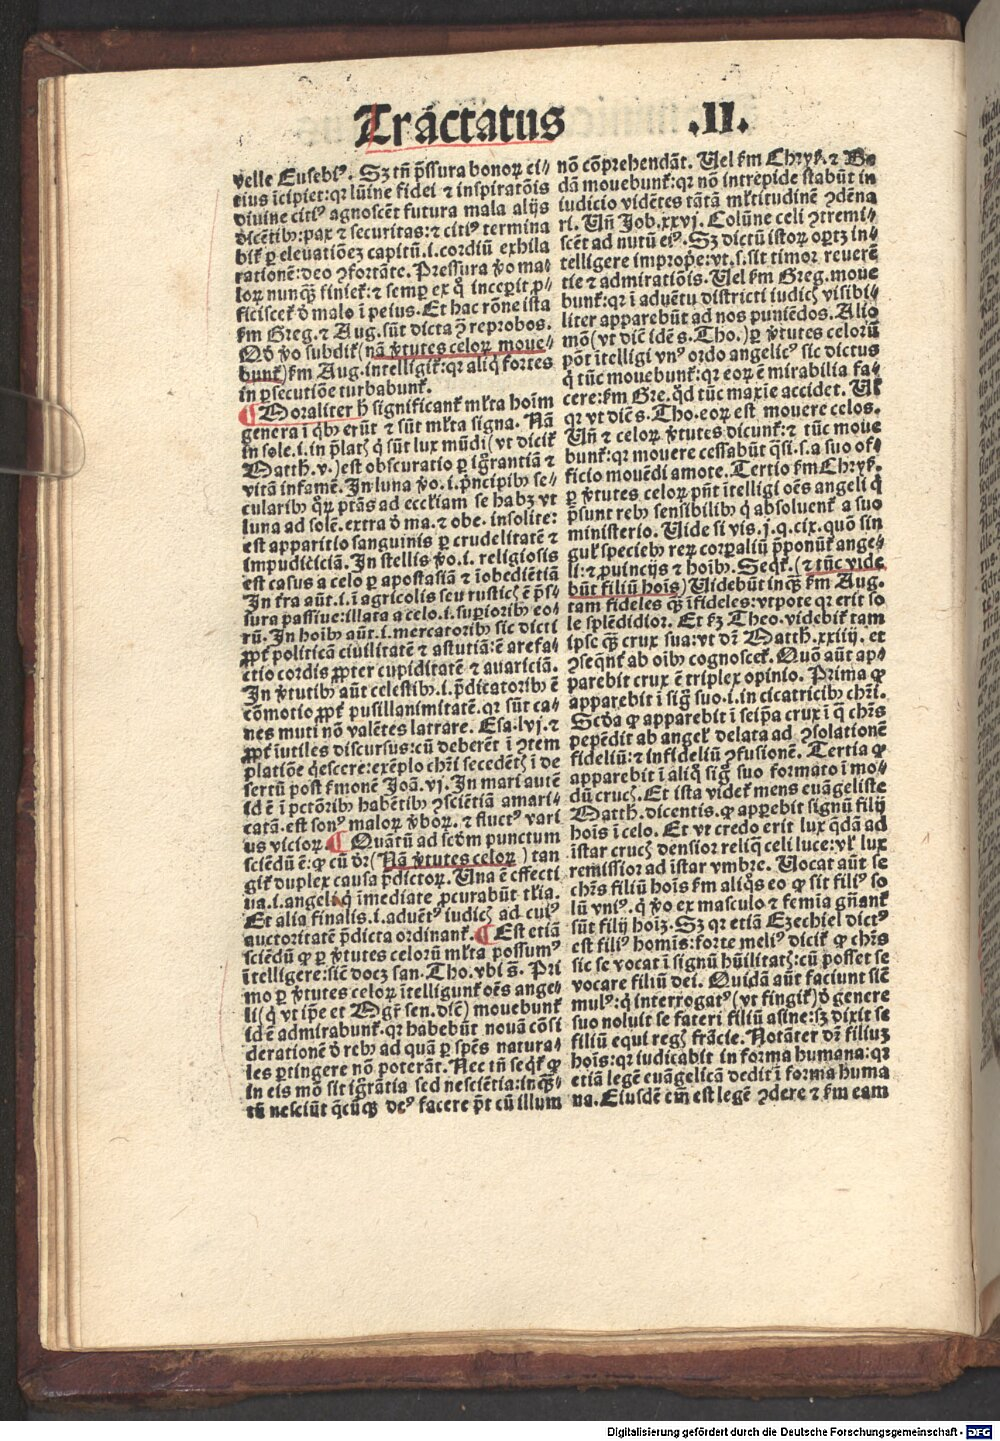 Tractatus .II.
velle Eusebiꝰ. Sꝫ tñ p̃ssura bonoꝝ ci⸗
tius ĩcipiet: qꝛ lũine fidei ⁊ inspiratõis
diuine citiꝰ agnoscẽt futura mala alijs
dicẽtibꝫ: pax ⁊ securitas: ⁊ citiꝰ termina
bit᷑ ꝑ eleuatiõeꝫ capitũ .i. cordiũ exhila
rationẽ: deo ꝯfortãte. Pressura ꝟo ma⸗
loꝝ nunqꝫ̃ finiet᷑: ⁊ semꝑ ex q̊ inceꝑit ꝓ⸗
ficiscet᷑ ð malo ĩ peius. Et hac rõne ista
fm Greg. ⁊ Aug. sũt dicta ꝯ̃ reprobos.
Qð ꝟo subdit᷑ (nã ꝟtutes celoꝝ moue⸗
bunt᷑) fm Aug. intelligit᷑: qꝛ aliq̃ fortes
in ꝑsecutiõe turbabunt᷑.
¶ Moraliter ꝑ h̃ significant᷑ mĺta hoĩm
genera ĩ qͥbꝫ erũt ⁊ sũt mĺta signa. Nã
in sole .i. in p̃latꝭ q̃ sũt lux mũdi (vt dicit᷑
Matth. v.) est obscuratio ꝑ igñrantiã ⁊
vitã infamẽ. In luna ꝟo .i. pͥncipibꝫ se⸗
cularibꝫ quoꝝ ptãs ad ecclíam se habꝫ vt
luna ad solẽ. extra ð ma. ⁊ obe. insolite:
est apparitio sanguinis ꝑ crudelitatẽ ⁊
impudiciciã. In stellis ꝟo .i. religiosis
est casus a celo ꝑ apostasiã ⁊ ĩobediẽtiã
In tr̃a aũt .i. ĩ agricolis seu rusticꝭ ẽ p̃s⸗
sura passiue: illata a celo .i. suꝑioribꝫ eo⸗
rũ. In hoĩbꝫ aũt .i. mercatoribꝫ sic dicti
ꝓpt᷑ politicã ciuilitatẽ ⁊ astutiã: ẽ arefa⸗
ctio cordis ꝓpter cupiditatẽ ⁊ auariciã.
In ꝟtutibꝫ aũt celestibꝫ .i. p̃dicatoribꝫ ẽ
cõmotio ꝓpt᷑ pusillanimitatẽ. qꝛ sũt ca⸗
nes muti nõ valẽtes latrare. Esa. lvj. ⁊
ꝓpt᷑ ĩutiles discursus: cũ deberẽt ĩ ꝯtem
platiõe qͥescere: exẽplo chr̃i secedẽtꝭ ĩ de
sertũ post ẜmonẽ Joã. vj. In mari autẽ
id ẽ ĩ pctõribꝫ habẽtibꝫ ꝯsciẽtiã amari⸗
catã. est sonꝰ maloꝝ ꝟboꝝ. ⁊ fluctꝰ vari
us vicioꝝ. ¶ Quãtũ ad scðm punctum
sciẽdũ ẽ: ꝙ cũ ðr (Nã ꝟtutes celoꝝ) tan
git᷑ duplex causa p̃dictoꝝ. Una ẽ effecti
ua .i. angeli q̃ ĩmediate ꝓcurabũt tĺia.
Et alia finalis .i. aduẽtꝰ iudicꝭ ad cuiꝰ
auctoritatẽ p̃dicta ordinant᷑. ¶ Est etiã
sciẽdũ ꝙ ꝑ ꝟtutes celorũ mĺta possumꝰ
ĩtelligere: sic̃ docꝫ san. Tho. vbi s̃. Pri
mo ꝑ ꝟtutes celoꝝ ĩtelligunt᷑ oẽs ange⸗
li (q̃ vt ip̃e et Mgr̃ sen. diẽt) mouebunt᷑
id ẽ admirabunt᷑. qꝛ habebũt nouã cõsi
derationẽ ð rebꝫ ad quã ꝑ sp̃es natura⸗
les ꝑtingere nõ poterãt. Nec tñ seqͥt᷑ ꝙ
in eis mõ sit igr̃atia sed nesciẽtia: inqꝫ̃⸗
tũ nesciũt qͥcũqꝫ deꝰ facere p̃t cũ illum
nõ cõprehendãt. Uel fm Chryſ. ⁊ Be
dã mouebunt᷑: qꝛ nõ intrepide stabũt in
iudicio vidẽtes tãtã mĺtitudinẽ ꝯdẽna
ri. Uñ Job. xxvj. Colũne celi ꝯtremi⸗
scẽt ad nutũ eiꝰ. Sꝫ dictũ istoꝝ oꝑtꝫ in⸗
telligere improp̃e: vt .s. sit timor reuerẽ
tie ⁊ admiratiõis. Uel fm Greg. moue
bunt᷑: qꝛ ĩ aduẽtu districti iudicꝭ visibi⸗
liter apparebũt ad nos puniẽdos. Alio
mõ (vt dic̃ idẽ s. Tho.) ꝑ ꝟtutes celorũ
põt ĩtelligi vnꝰ ordo angelicꝰ sic dictus
q̃ tũc mouebunt᷑: qꝛ eoꝝ ẽ mirabilia fa⸗
cere: fm Gre. qð tũc maxĩe accidet. Ul̃
qꝛ vt dic̃ s. Tho. eoꝝ est mouere celos.
Uñ ⁊ celoꝝ ꝟtutes dicunt᷑: ⁊ tũc moue
bunt᷑: qꝛ mouere cessabũt qͣsi .s. a suo of⸗
ficio mouẽdi amote. Tertio fm Chryſ.
ꝑ ꝟtutes celoꝝ pñt ĩtelligi oẽs angeli q̃
p̃sunt rebꝫ sensibilibꝫ q̃ absoluent᷑ a suo
ministerio. Uide si vis .j. q. cix. quõ sin
gul᷑ speciebꝫ reꝝ corꝑaliũ p̃ponũt᷑ ange⸗
li: ⁊ ꝓuincijs ⁊ hoĩbꝫ. Seqͥt᷑. (⁊ tũc vide
bũt filiũ hoĩs) Uidebũt inqꝫ̃ fm Aug.
tam fideles qꝫ̃ ĩfideles: vtpote qꝛ erit so
le splẽdidior. Et fꝫ Theo. videbit᷑ tam
ipse qꝫ̃ crux sua: vt dr̃ Matth. xxiiij. et
ꝯseqñt᷑ ab oĩbꝫ cognoscet᷑. Quõ aũt ap⸗
parebit crux ẽ triplex opinio. Prima ꝙ
apparebit ĩ sig̃ suo .i. in cicatricibꝫ chr̃i.
Scðа ꝙ apparebit ĩ seip̃a crux ĩ q̃ chr̃s
pepẽdit ab angel᷑ delata ad ꝯsolationẽ
fideliũ: ⁊ infideliũ ꝯfusionẽ. Tertia ꝙ
apparebit ĩ aliq̊ sig̃ suo formato ĩ mo⸗
dũ crucꝭ. Et ista videt᷑ mens euãgeliste
Matth. dicentis. ꝙ apꝑebit signũ filij
hoĩs ĩ celo. Et vt credo erit lux qͥdã ad
ĩstar crucꝭ densior reliqͣ celi luce: vl᷑ lux
remissior ad istar vmbre. Uocat aũt se
chr̃s filiũ hoĩs fm aliqͦs eo ꝙ sit filiꝰ so
lũ vniꝰ. q̃ ꝟo ex masculo ⁊ femĩa gñant᷑
sũt filij hoĩꝫ. Sꝫ qꝛ etiã Ezechiel dictꝰ
est filiꝰ homĩs: forte meliꝰ dicit᷑ ꝙ chr̃s
sic se vocat ĩ signũ hũilitatꝭ: cũ posset se
vocare filiũ dei. Quidã aũt faciunt sic̃
mulꝰ: q̃ interrogatꝰ (vt fingit᷑) ð genere
suo noluit se fateri filiũ asine: sꝫ dixit se
filiũ equi regꝭ frãcie. Notãter dr̃ filiuꝫ
hoĩs: qꝛ iudicabit in forma humana: qꝛ
etiã legẽ euãgelicã dedit ĩ forma huma
na. Eiusdẽ em̃ est legẽ ꝯdere ⁊ fm eam
Digitalisierung gefördert durch die Deutsche Forschungsgemeinschaft - DFG